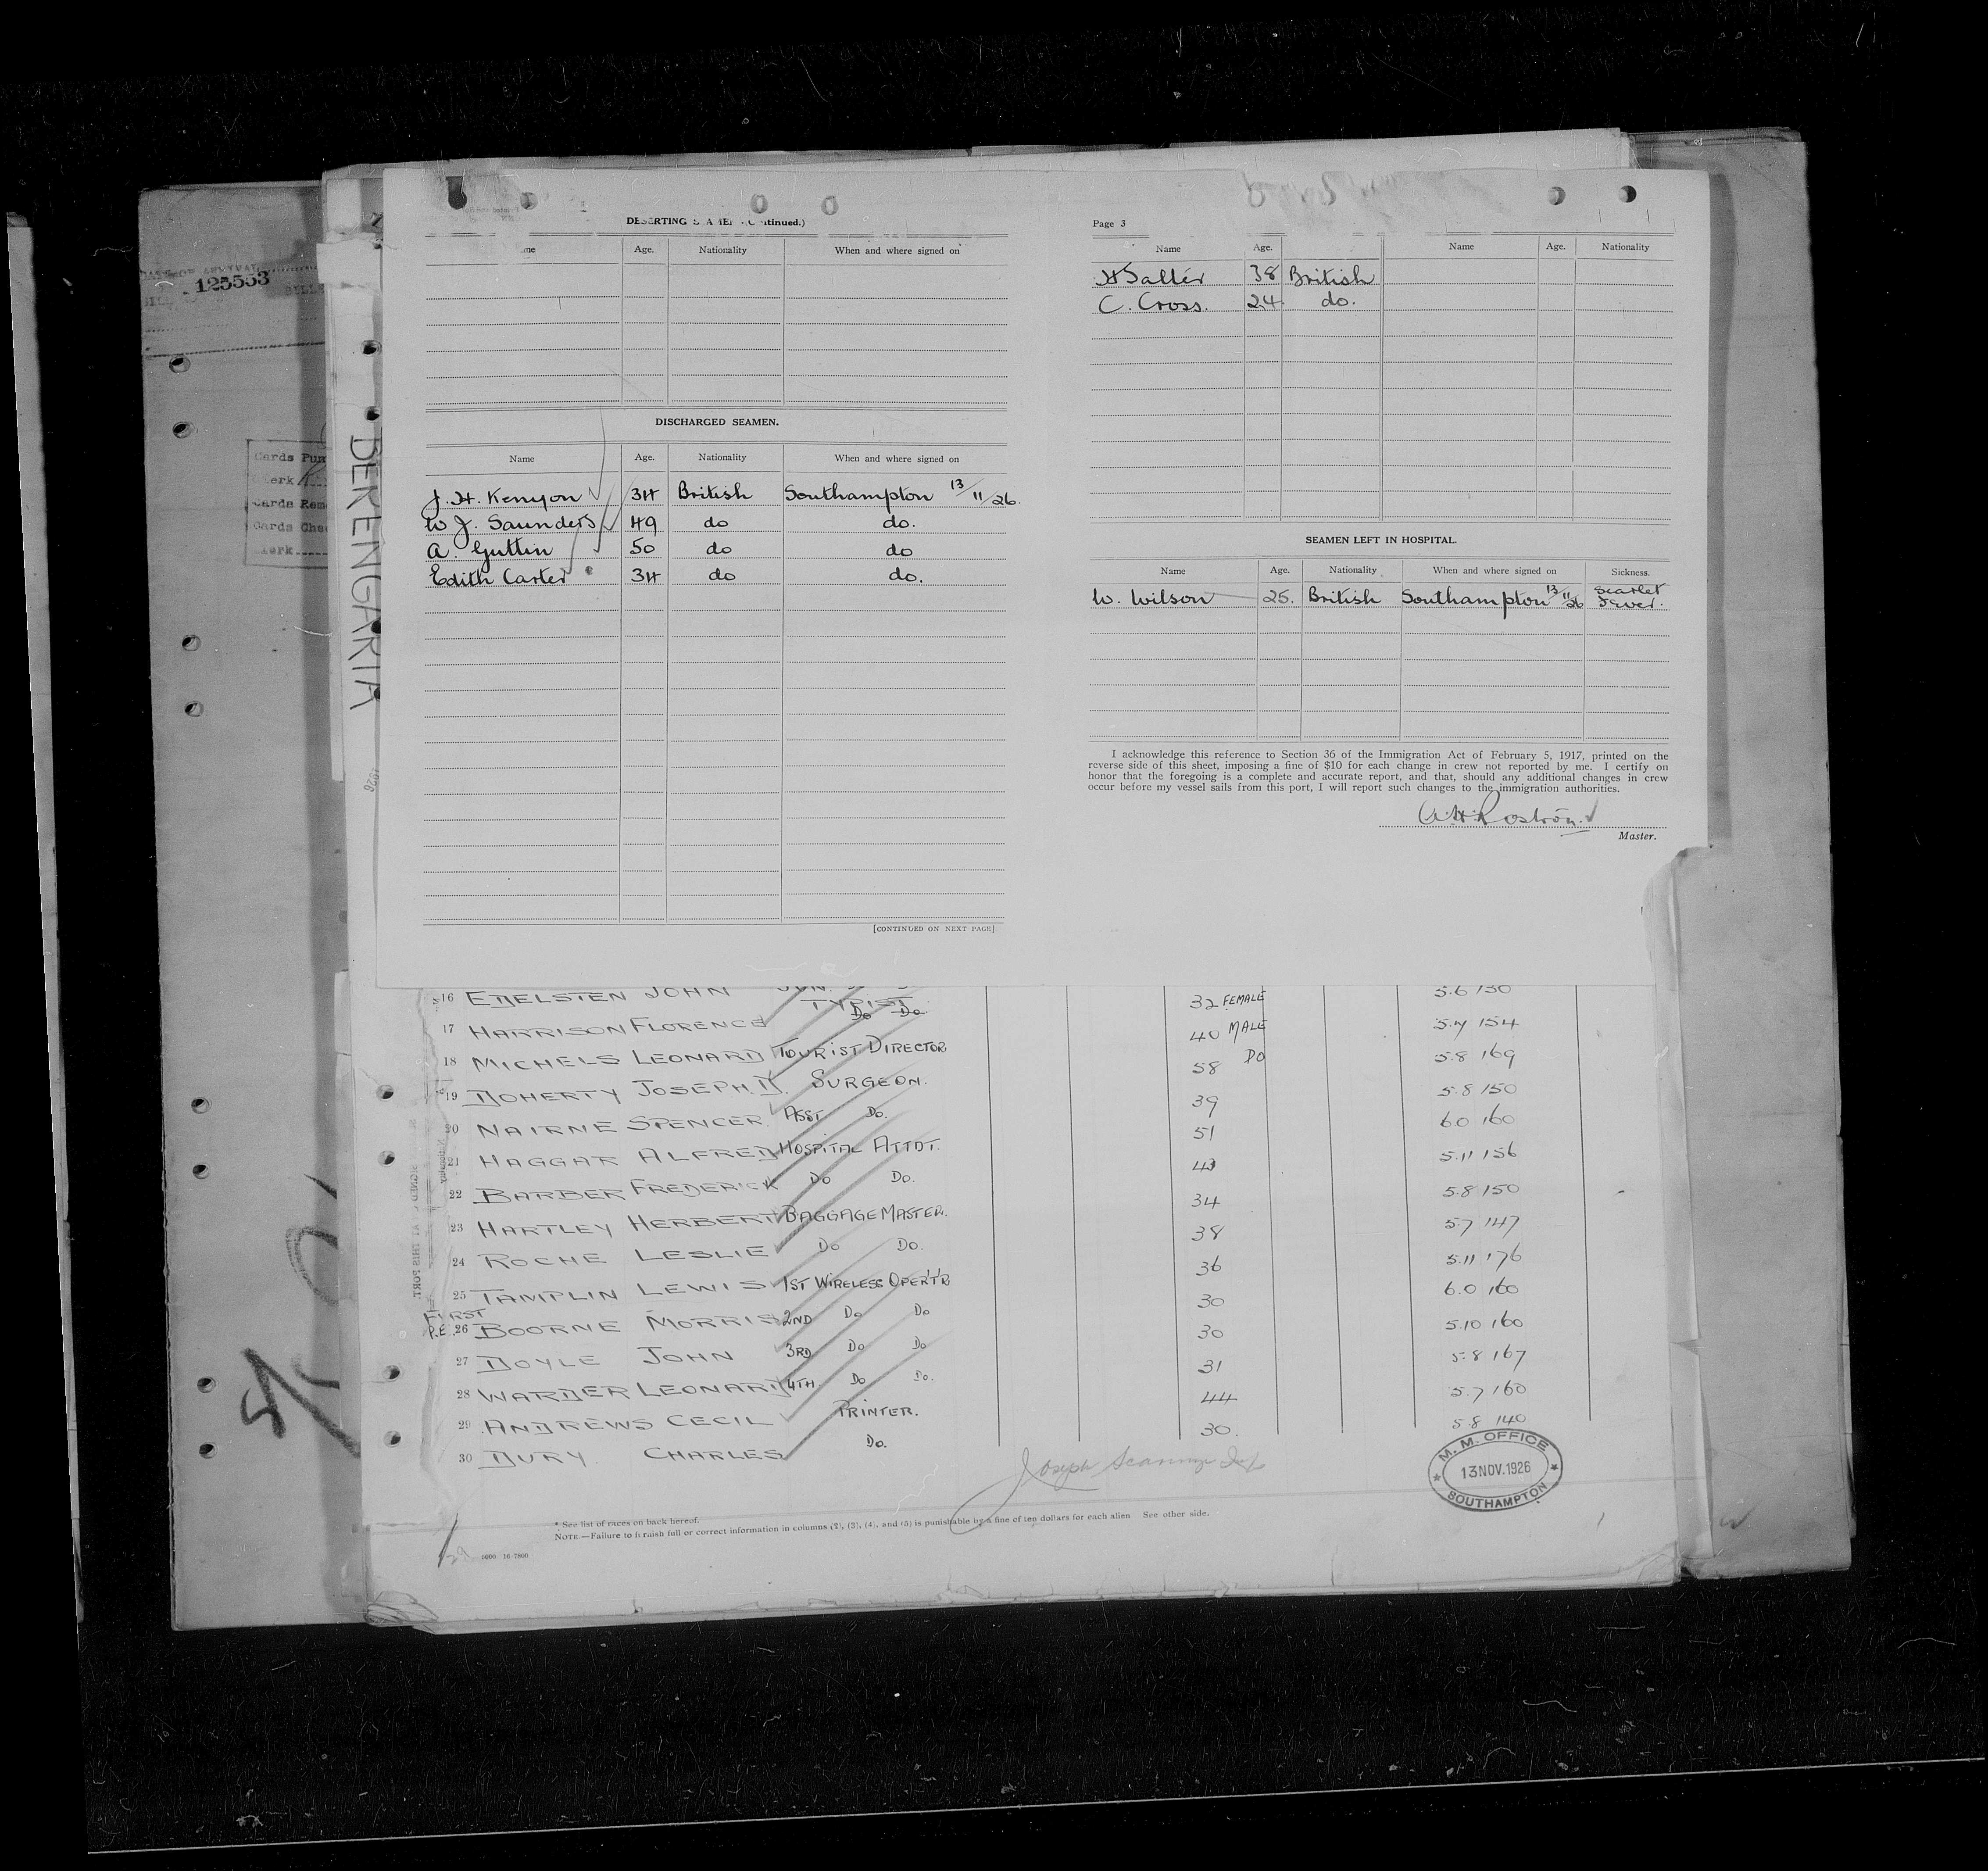 125553
Cards Pun
Clerk
Cards Rem
Cards Chec
Clerk
BERENGARIA
DESERTING
Name Age. Nationality When and where signed on
DISCHARGED SEAMEN.
Name Age. Nationality When and where signed on
J. H. Kenyon 34 British Southampton 13/11/26.
W J. Saunders 49 do do.
A. Guttin 50 do do
Edith Carter 34 do do.
[CONTINUED ON NEXT PAGE]
Page 3
Name Age. Name Age. Nationality
H Salter 38 British
C. Cross. 24 do.
SEAMEN LEFT IN HOSPITAL.
Name Age. Nationality When and where signed on Sickness.
W. Wilson 25. British Southampton 13/11/26 Scarlet Fever.
I acknowledge this reference to Section 36 of the Immigration Act of February 5, 1917, printed on the
reverse side of this sheet, imposing a fine of $10 for each change in crew not reported by me. I certify on
honor that the foregoing is a complete and accurate report, and that, should any additional changes in crew
occur before my vessel sails from this port, I will report such changes to the immigration authorities.
A. H. Rostron.
Master.
16 EDELSTEN JOHN JUN.
TYPIST 5.6 130
17 HARRISON FLORENCE Do Do 32 FEMALE
18 MICHELS LEONARD TOURIST DIRECTOR 40 MALE 5.7 154
19 DOHERTY JOSEPH. D. SURGEON. 58 DO 5.8 169
20 NAIRNE SPENCER ASST Do. 39 5.8 150
21 HAGGAR ALFRED HOSPITAL ATTDT. 51 6.0 160
22 BARBER FREDERICK Do Do. 43 5.11 156
23 HARTLEY HERBERT BAGGAGE MASTER. 34 5.8 150
24 ROCHE LESLIE Do Do. 38 5.7 147
25 TAMPLIN LEWIS 1ST WIRELESS OPER'T'R 36 5.11 176
FIRST
P.E. 26 BOORNE MORRIS 2ND Do Do 30 6.0 160
27 DOYLE JOHN 3RD Do Do 30 5.10 160
28 WARDER LEONARD 4TH Do Do. 31 5.8 167
29 ANDREWS CECIL PRINTER. 44 5.7 160
30 DURY CHARLES Do. 30. 5.8 140
M. M. OFFICE
13 NOV. 1926
SOUTHAMPTON
* See list of races on back hereof.
NOTE.—Failure to furnish full or correct information in columns (2), (3), (4), and (5) is punishable by a fine of ten dollars for each alien See other side.